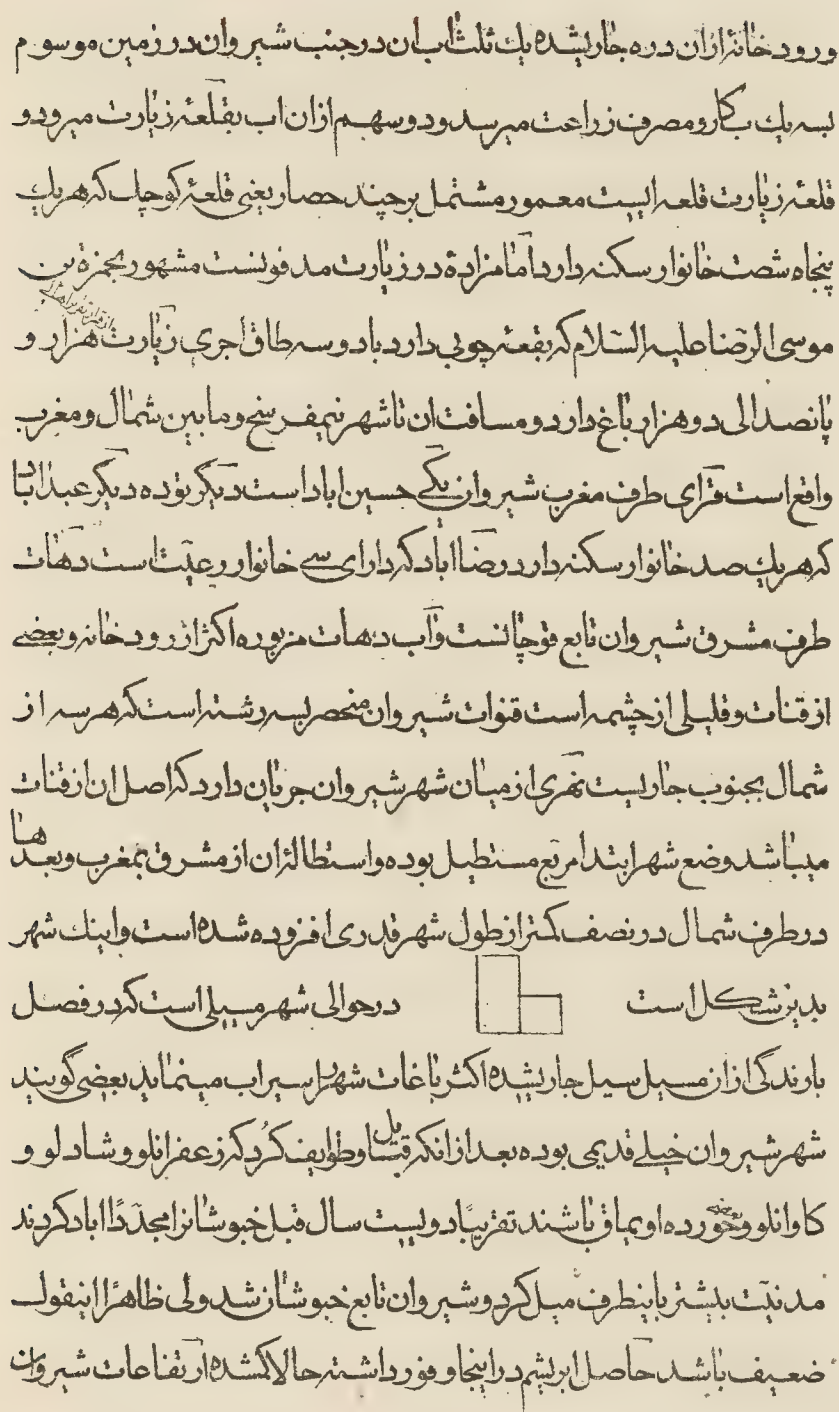 و رودخانهٔ از ان دره جاریشده یك ثلث اب ان در جنب شیروان در زمین موسوم
بسه یك بكار و مصرف زراعت میرسد و دو سهم از ان اب بقلعهٔ زیارت میرود و
قلعهٔ زیارت قلعه ایست معمور مشتمل بر چند حصار یعنی قلعهٔ كوچك كه هر یك
پنجاه شصت خانوار سكنه دارد امامزادهٔ در زیارت مدفونست مشهور بحمزة بن
موسی الرضا علیه السلام كه بقعهٔ چوبی دارد با دو سه طاق اجری زیارت هزار و
پانصد الی دو هزار باغ دارد و مسافت ان تا شهر نیمفرسخ و ما بین شمال و مغرب
واقع است قرای طرف مغرب شیروان یكی حسین اباد است دیگر توده دیگر عبداباد
كه هر یك صد خانوار سكنه دارد و رضا اباد كه دارای سی خانوار رعیت است دهات
طرف مشرق شیروان تابع قوچانست و آب دهات مزبوره اكثر از رودخانه و بعضی
از قنات و قلیلی از چشمه است قنوات شیروان منحصر بسه رشته است كه هر سه از
شمال بجنوب جاریست نهری از میان شهر شیروان جریان دارد كه اصل ان از قنات
میباشد وضع شهر ابتدا مربع مستطیل بوده و استطالهٔ ان از مشرق بمغرب و بعدها
در طرف شمال در نصف كمتر از طول شهر قدری افزوده شده است و اینك شهر
بدین شكل است در حوالی شهر مسیلی است كه در فصل
بارندگی از ان مسیل سیل جاریشده اكثر باغات شهر را سیراب مینماید بعضی گویند
شهر شیروان خیلی قدیمی بوده بعد از انكه قبایل و طوایف كُرد كه زعفرانلو و شادلو و
كاوانلو و خورده اویماق باشند تقریبًا دویست سال قبل خبوشانرا مجددًا اباد كردند
مدنیت بیشتر باینطرف میل كرد و شیروان تابع خبوشان شد ولی ظاهرًا اینقول
ضعیف باشد حاصل ابریشم در اینجا وفور داشته حالا كمشده ارتفاعات شیروان